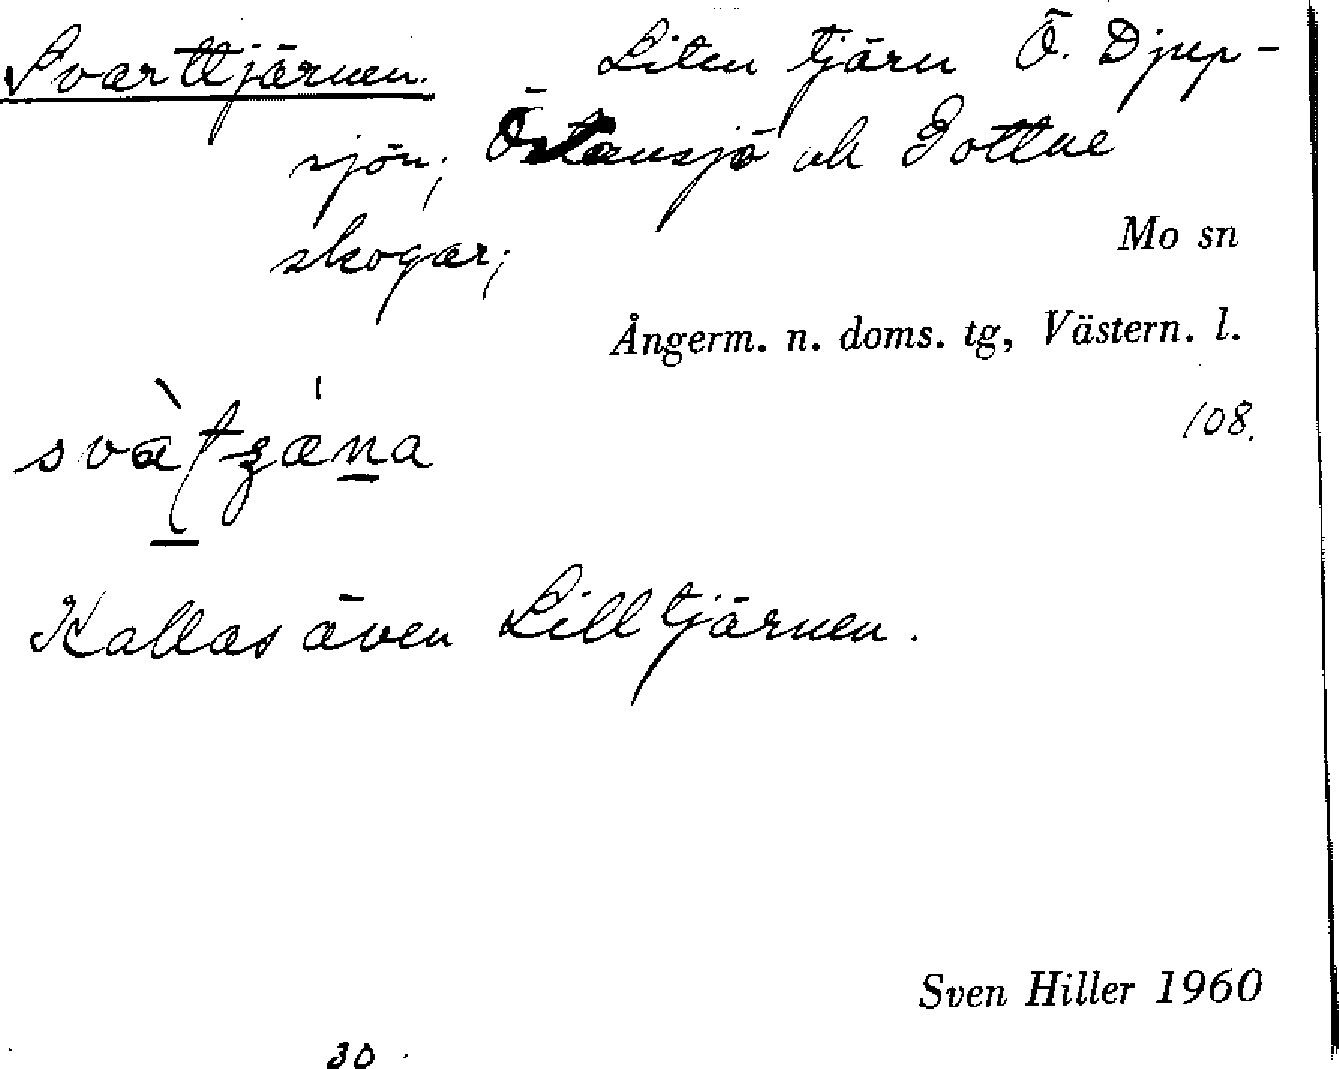 Svarttjärnen. Liten tjärn Ö. Djup-
sjön; Östansjö och Gottne
skogar;
Mo sn
Ångerm. n. doms. tg, Västern. l.
108.
Kallas även Lilltjärnen.
Sven Hiller 1960
30